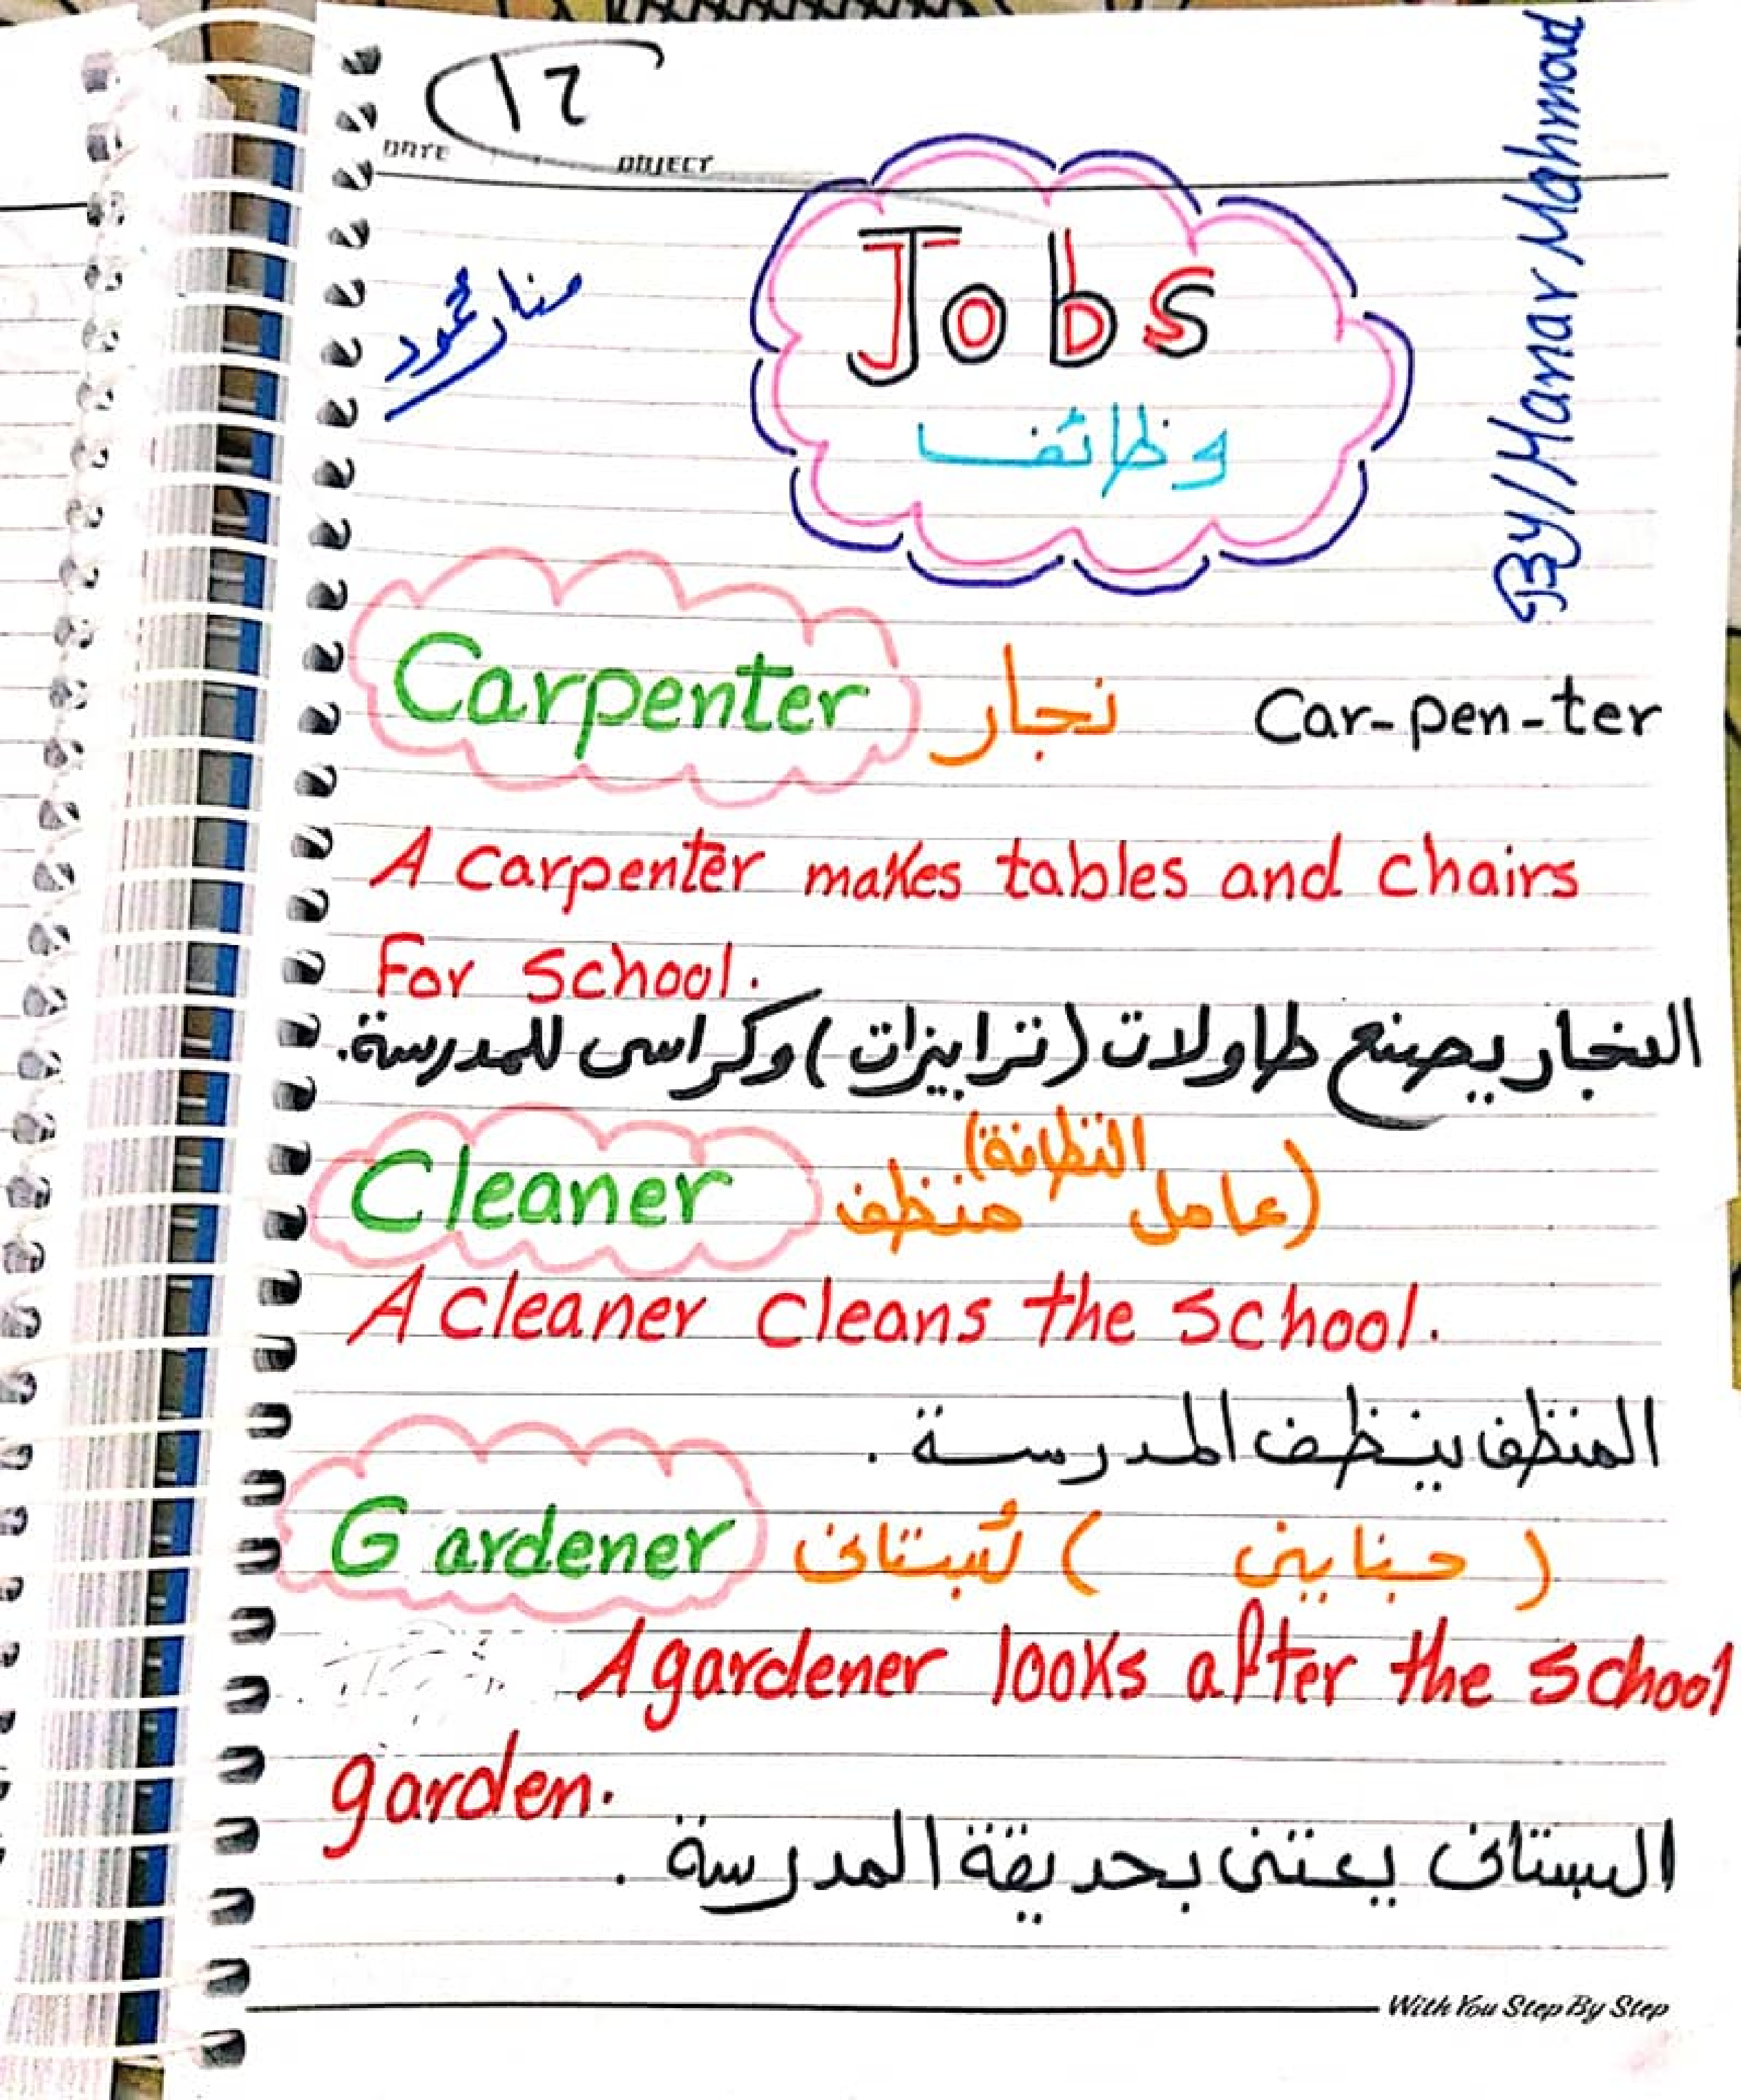 ١٢
DATE
OBJECT
By/Manar Mahmoud
منار محمود
Jobs
وظائف
Carpenter نجار Car-pen-ter
A carpenter makes tables and chairs
For school.
النجار يصنع طاولات (ترابيزات) وكراسى للمدرسة.
Cleaner منظف (عامل النظافة)
A cleaner cleans the school.
المنظف ينظف المدرسة .
Gardener بُستانى ( جنايني )
A gardener looks after the school
garden.
البستانى يعتنى بحديقة المدرسة .
With You Step By Step